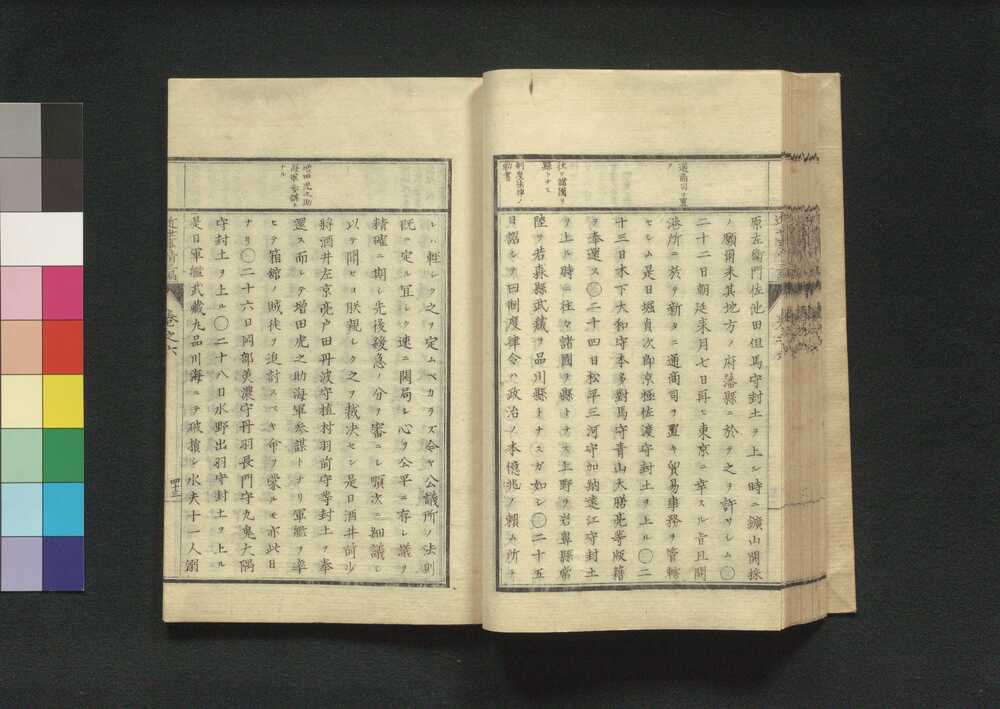 通商司ヲ置
ク
往〻諸國ヲ
縣トナス
制度法律ノ
詔書
原左衛門佐池田但馬守封土ヲ上シ時ニ鑛山開採
ノ願爾来其地方ノ府藩縣ニ於テ之ヲ許サレム〇
二十二日朝廷来月七日再ヒ東京ニ幸スル旨且開
港所ニ於テ新タニ通商司ヲ置キ貿易事務ヲ管轄
セシム是日堀貞次郎京極佐渡守封土ヲ上ル〇二
十三日木下大和守本多對馬守青山大膳亮等版籍
ヲ奉還ス〇二十四日松平三河守加納遠江守封土
ヲ上ル時ニ往〻諸國ヲ縣トナス上野ヲ岩鼻縣常
陸ヲ若森縣武藏ヲ品川縣トナスガ如シ〇二十五
日詔シテ曰制度律令ハ政治ノ本億兆ノ頼ム所ナ
増田虎之助
海軍参謀ト
ナル
レハ輕シク之ヲ定ムベカラズ今ヤ公議所ノ法則
既ニ定ル宜レク速ニ開局シ心ヲ公平ニ存レ議ヲ
精確ニ期レ先後緩急ノ分ヲ審ニレ順次ニ細議シ
以テ聞セヨ朕親シク之ヲ裁决セン是日酒井前少
將酒井左京亮戸田丹波守植村羽前守等封土ヲ奉
還ス而レテ増田虎之助海軍参謀トナリ軍艦ヲ率
ヒテ箱館ノ賊徒ヲ追討スベキ命ヲ蒙ルモ亦此日
ナリ〇二十六日岡部美濃守丹羽長門守九鬼大隅
守封土ヲ上ル〇二十八日水野出羽守封土ヲ上ル
是日軍艦武藏丸品川海ニテ破損シ水夫十一人溺
卷之六
四十三